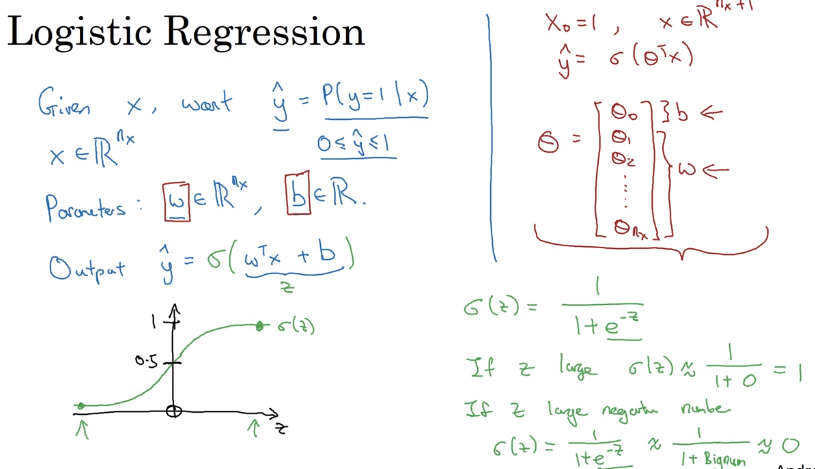 Logistic Regression
Given x, want ŷ = P(y=1|x)
x ∈ ℝ^{n_x}
0 ≤ ŷ ≤ 1
Parameters: w ∈ ℝ^{n_x}, b ∈ ℝ.
Output ŷ = σ(wᵀx + b)
z
1
0.5
σ(z)
0
z
x₀ = 1, x ∈ ℝ^{n_x+1}
ŷ = σ(θᵀx)
θ = [θ₀ } b ←
θ₁
θ₂ } w ←
⋮
θ_{n_x}]
σ(z) = 1 / (1 + e^{-z})
If z large σ(z) ≈ 1 / (1 + 0) = 1
If z large negative number
σ(z) = 1 / (1 + e^{-z}) ≈ 1 / (1 + Bignum) ≈ 0